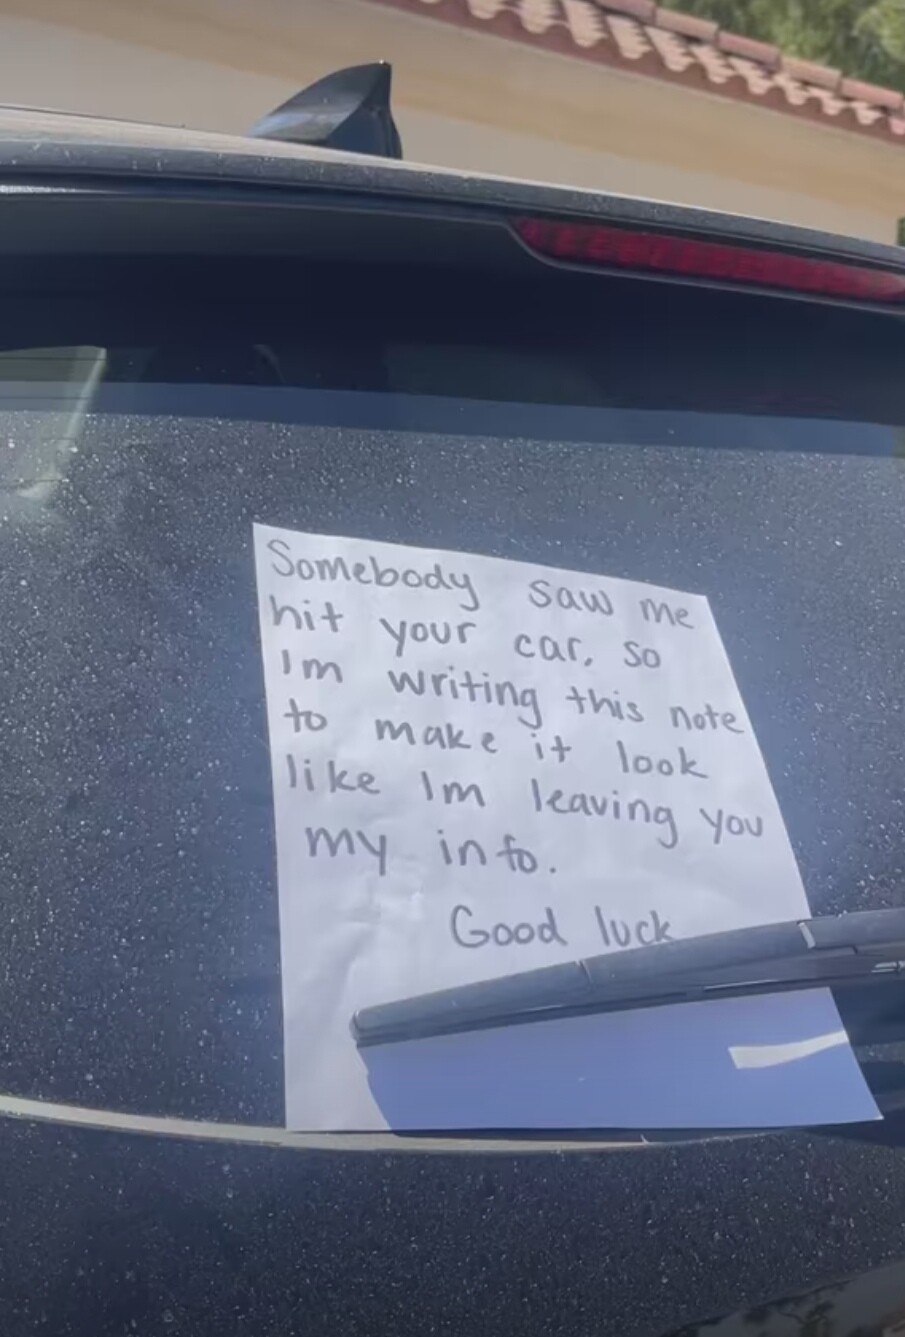 Somebody saw me
hit your car, so
Im writing this note
to make it look
like Im leaving you
my info.
Good luck